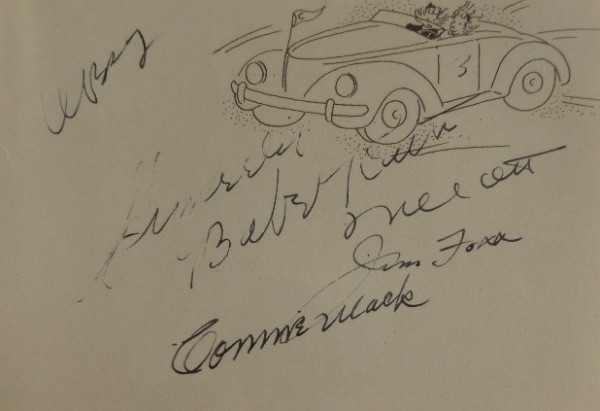 C
3
Sincerely
Babe Ruth
Mel Ott
Jim Foxx
Connie Mack